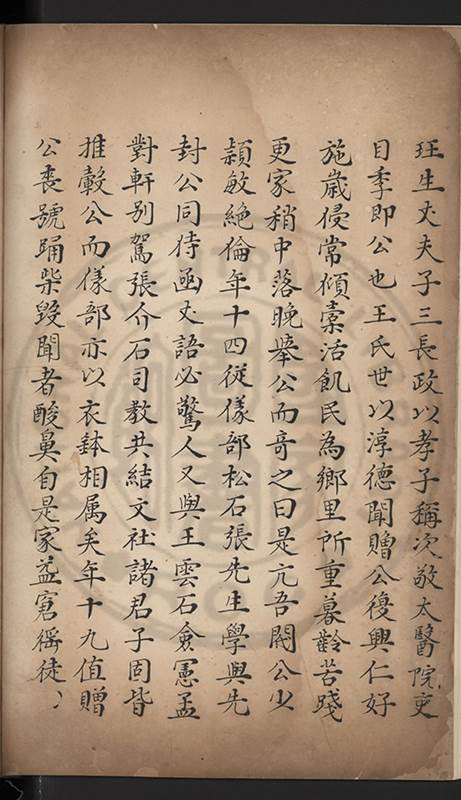 珏生丈夫子三長政以孝子稱次敬太醫院吏
目季即公也王氏世以淳德聞贈公復興仁好
施歲侵常傾橐活飢民為鄉里所重暮齡苦踐
更家稍中落晚舉公而奇之曰是亢吾閎公少
頴敏絶倫年十四從儀部松石張先生學與先
封公同侍函丈語必驚人又與王雲石僉憲孟
對軒别駕張介石司教共結文社諸君子固皆
推轂公而儀部亦以衣鉢相属矣年十九值贈
公喪號踊柴毀聞者酸鼻自是家益窘徭徒